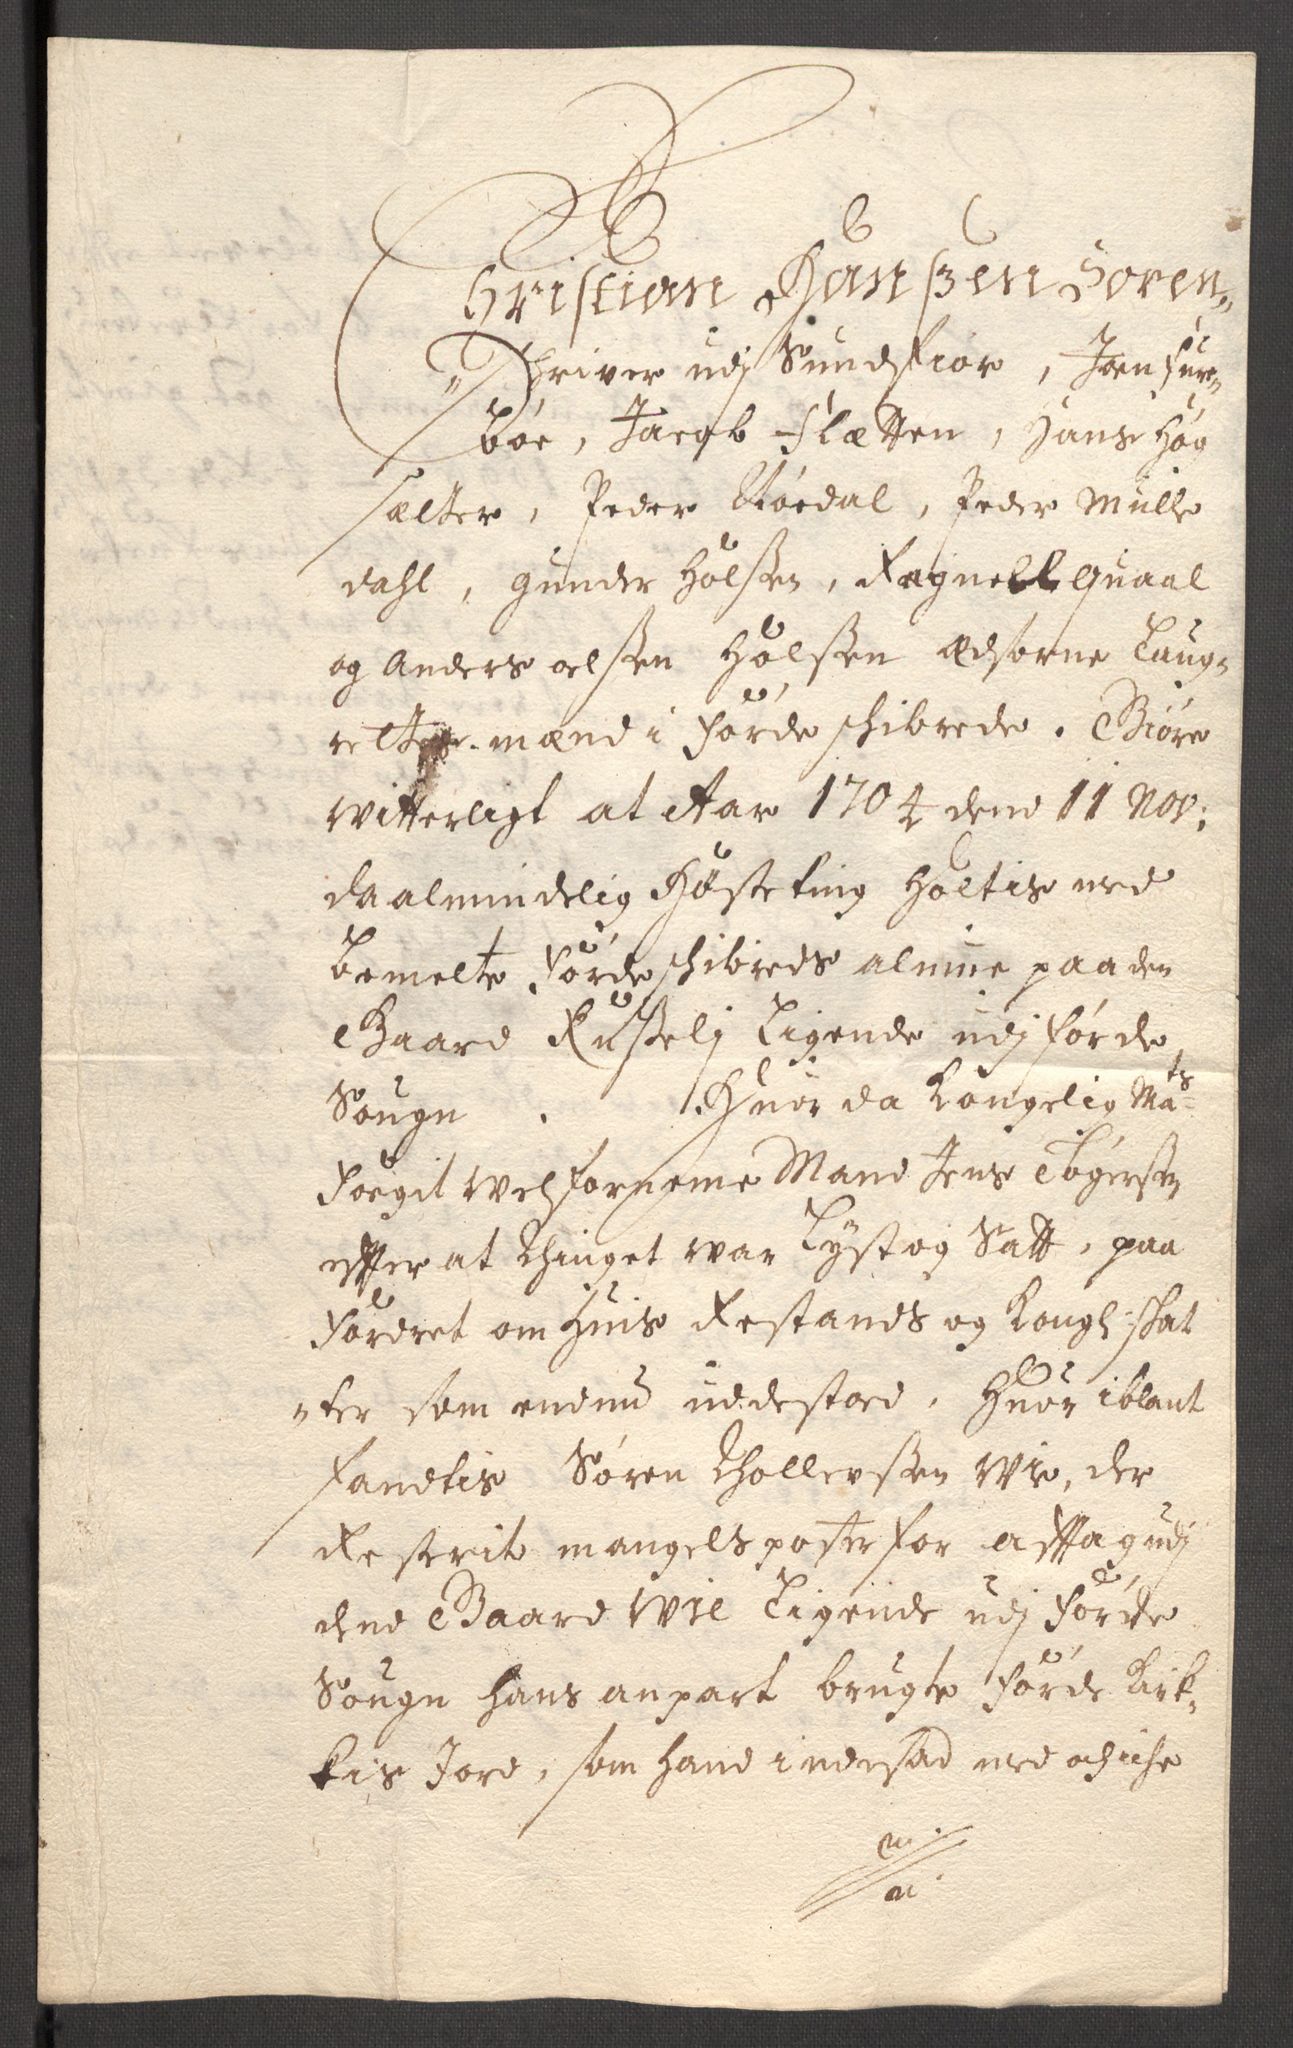 Christian Hanßen Soren-
schriver udj Sundfior, Joen Fure-
bøe, Jacob Flætten, Hans Høg
sælter, Peder Støedal, Peder Mülle
dahl, gunder Holßen, Ragnell Quaal
og Anders olßen Holßen Edsorne Laug-
rettes mænd i Førde schibrede. Giøre
Witterligt at Aar 1704 dend 11 Nov:
da almindelig Høsteting holtis med
bemelte Førde schibreds almue paa den
Gaard Rußelj Ligende udj Førde
Sougn. Huor da Kongelig Mats
Foegit Welforneme Mand Jens Bøgerßen
effter at Thinget war Lyst og Satt, paa
Fordret om huis Restands og Kongl: skat
ter som endnu udestoed, Huor iblant
fandtis Søren Thollevßen Wie, der
Resterit mangels poster for afftag udj
dend Gaard Wie Ligende udj Førde
Sougn hans anpart brugte Førde Kirk-
kis Jord, som hand indesad med